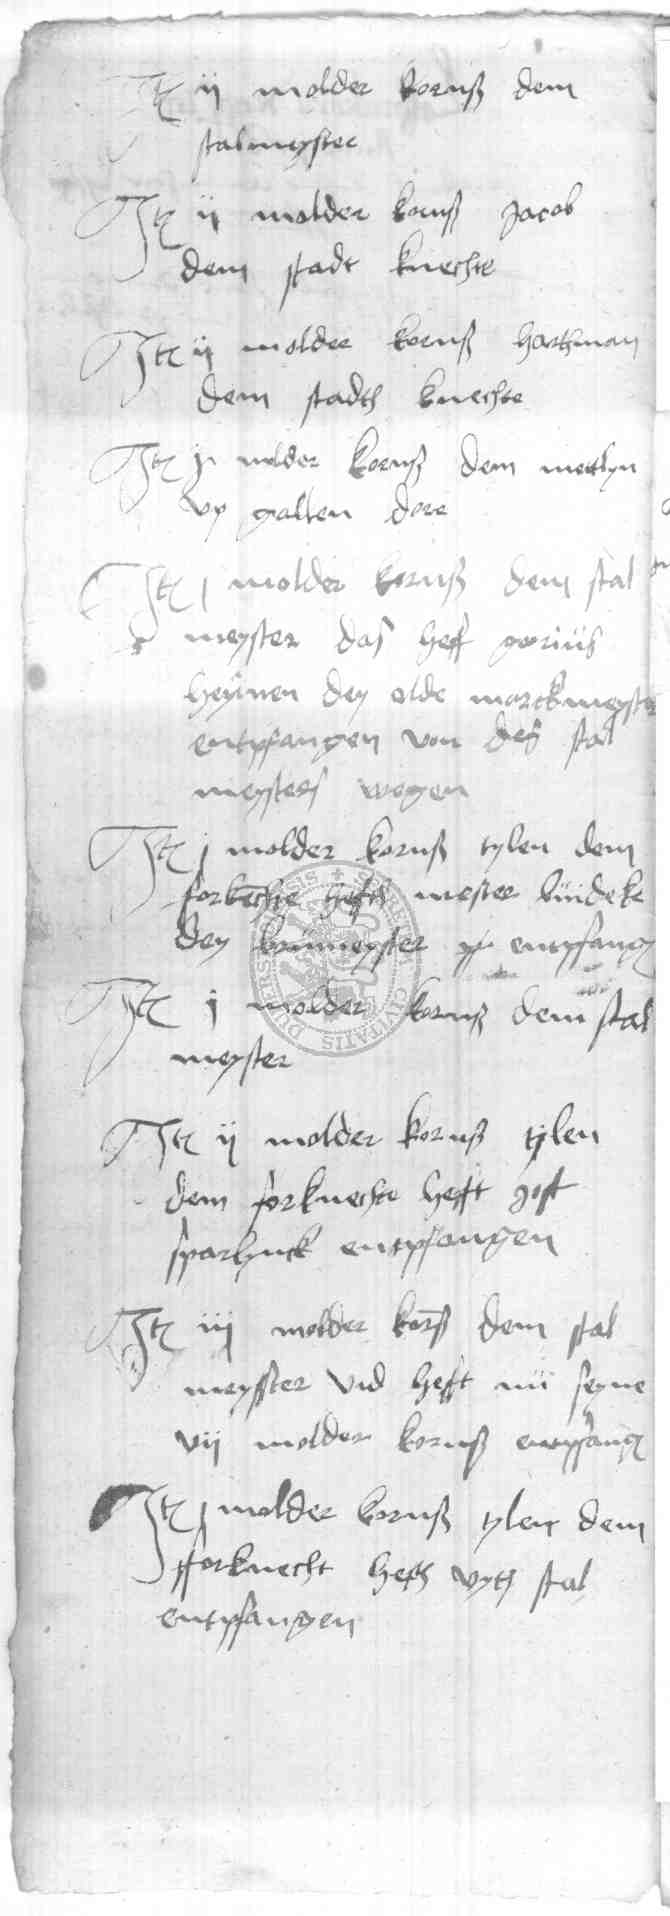 Itz ij molder kornß dem
stalmeyster
Itz ij molder kornß Jacob
dem stadt knechte
Itz ij molder kornß harthman
dem stadth knechte
Itz j molder kornß dem
vp galken dore
Itz j molder kornß dem stal
meyster das heff
heynen dey olde marckmeyster
entpfangen von des stal
meysters wegen
Itz j molder kornß tylen dem
hefft mester lüdeke
dey entpfang
Itz j molder kornß dem stal
meyster
Itz ij molder kornß tylen
dem forknecht hefft Jost
sparlynck entpfangen
Itz iij molder korß dem stal
meyster vnd hefft nü seyne
vij molder kornß entpfang
Itz j molder kornß tylen dem
fforknecht hefth vyth stal
entpfangen
SIS CIVITATIS